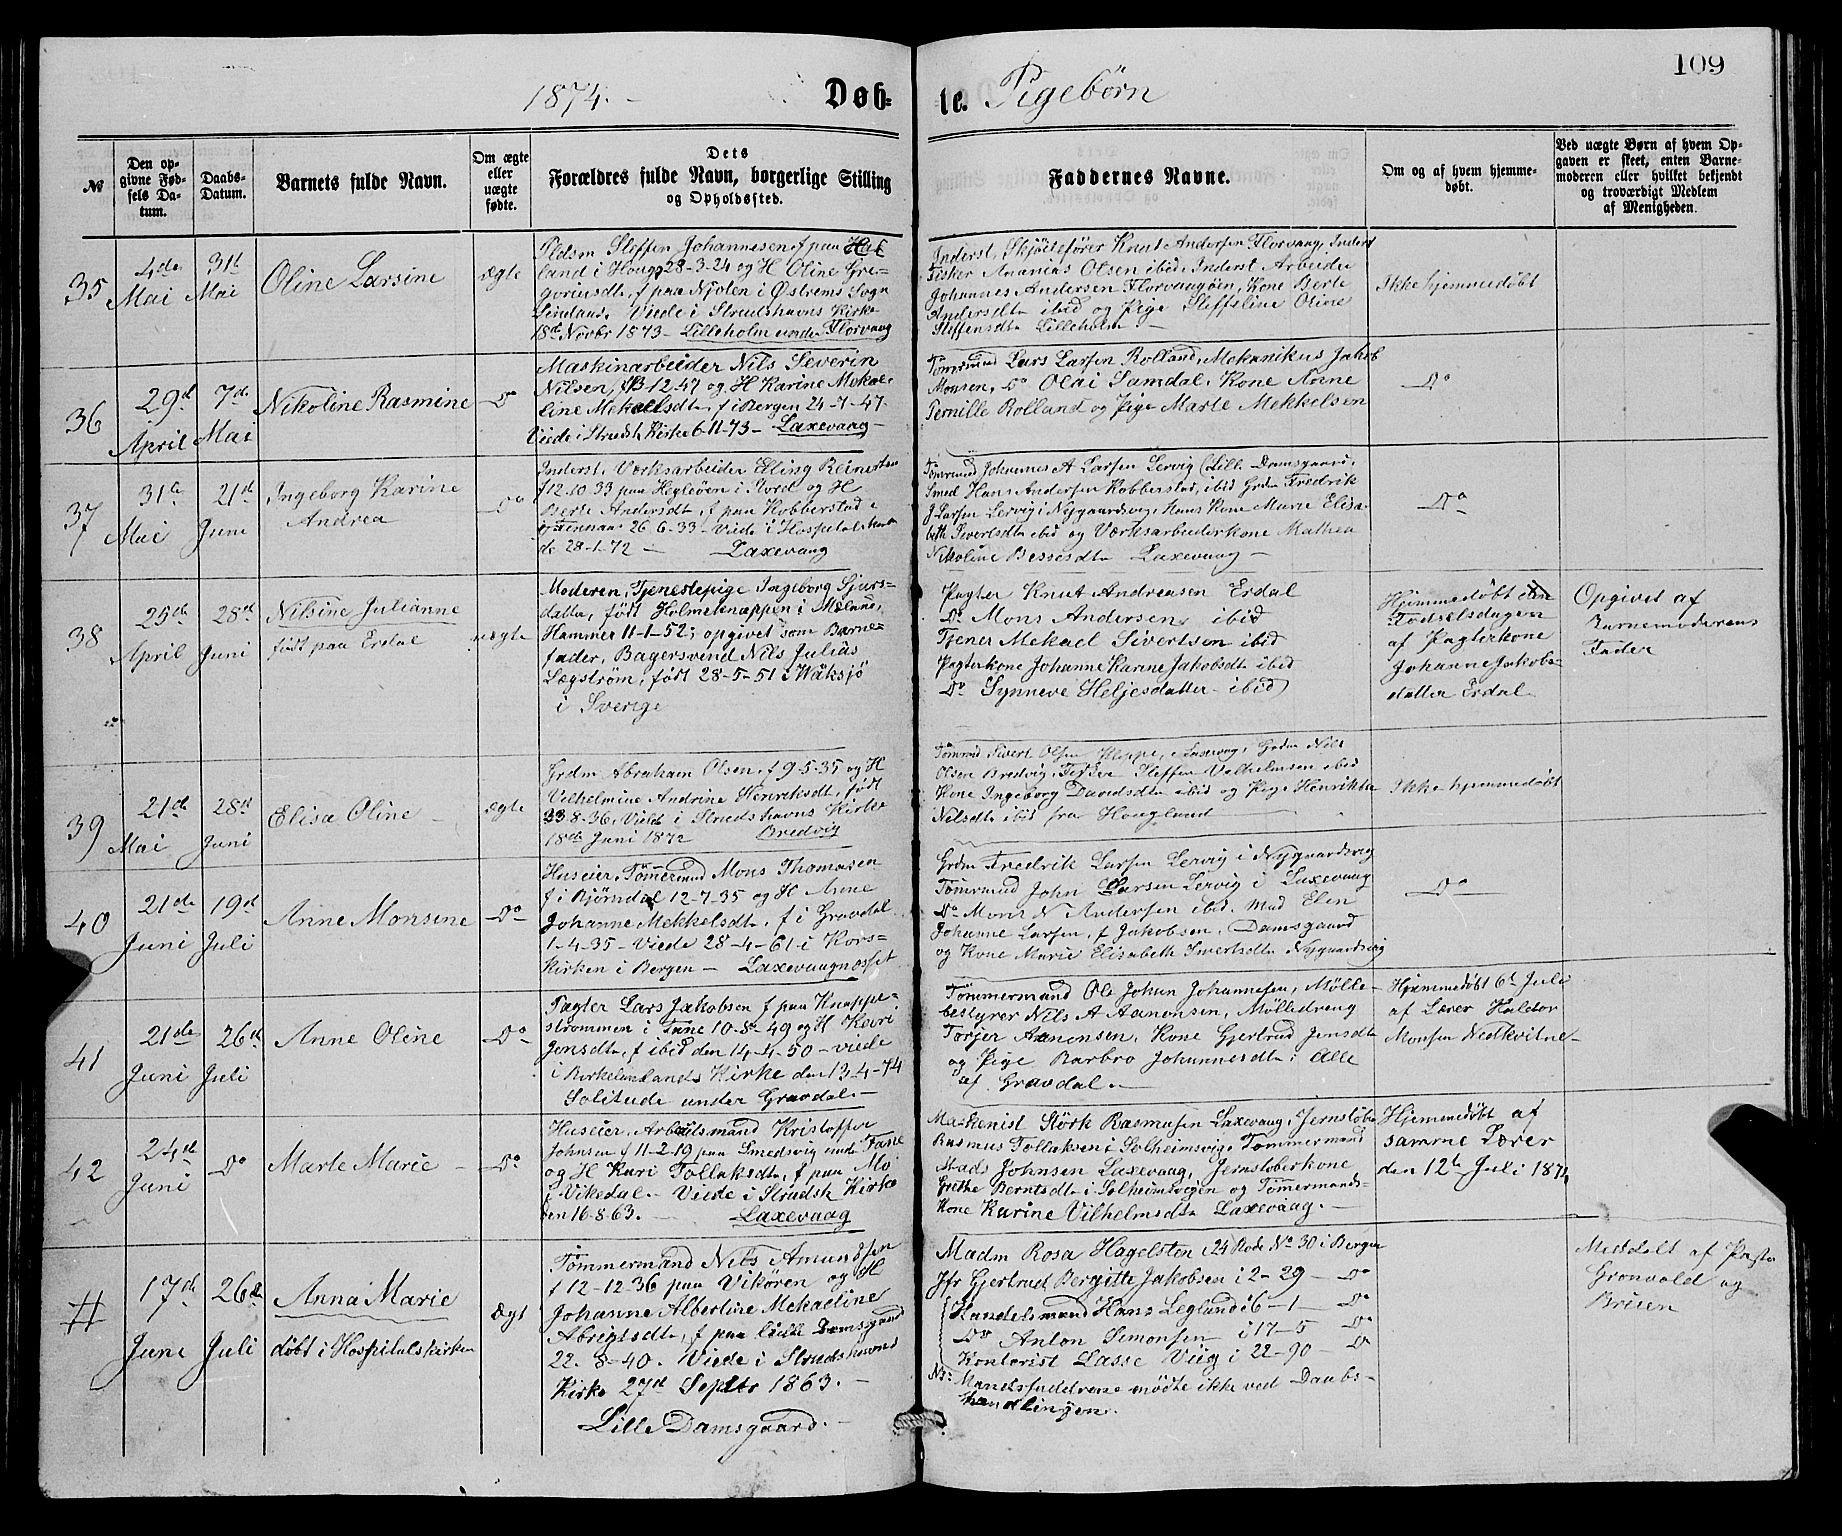 109
1874.- Døb- te. Pigebørn
№
Den op-
givne Fød-
sels Da-
tum.
Daabs-
Datum.
Barnets fulde Navn.
Om ægte
eller
uægte
fødte.
Dets
Forældres fulde Navn, borgerlige Stilling
og Opholdssted.
Faddernes Navne.
Om og af hvem hjemme-
døbt.
Ved uægte Børn af hvem Op-
gaven er skeet, enten Barne-
moderen eller hvilket bekjendt
og troværdigt Medlem
af Menigheden.
35
4de
Mai
31t
Mai
Oline Larsine
ægte
Steffen Johannesen, f paa
land i Houg 28-3-24 og H Oline Gre-
goriusdt, f paa Njolen i Østrems Sogn
Viede i Strudshavns Kirke
18de Novbr 1873 - Lilleholm under Florvaag
Inderst, Skjøtsfører Knut Andersen Florvaag, Inderst
Fisker Ananias Olsen ibid, Inderst Arbeider
Johannes Andersen Florvaagøen, Kone Berte
Andersdt ibid og Pige Steffeline Oline
Steffensdt Lilleholm -
Ikke hjemmedøbt
36
29d
April
7de
Mai
Nikoline Rasmine
Do
Maskinarbeider Nils Severin
Nilsen, f 3-12-47 og H Karine Mekae-
line Mekaelsdt, f i Bergen 24-7-47-
Viede i Strudsh Kirke 6-11-73 - Laxevaag -
Tømrmd Lars Larsen Rolland, Mekanikus Jakob
Monsen, Do Olai Samdal, Kone Anne
Pernille Rolland og Pige Marte Mekkelsen
Do
37
31te
Mai
21d
Juni
Ingeborg Karine
Andrea
Do
Inderst, Værksarbeider Elling Reinertsen
f 12-10-33 paa Hegleøen i Stord og H
Berte Andersdt, f paa Kobberstad i
Finnaas 26-6-33 - Viede i Hospitalskirken
de 28-1-72 - Laxevaag
Tømrmd Johannes A Larsen Lervig (Lille Damsgaard,
Smed Hans Andersen Kobberstad, ibid Grdm Fredrik
J Larsen Lervig i Nygaardsvig, Hans Kone Marie Elisa-
beth Sivertsdt ibid og Værksarbeiderkone Mathea
Nikoline Bessesdt Laxevaag -
Do
38
25de
April
28de
Juni
Nilsine Julianne
født paa Erdal
uægte
Moderen, Tjenestepige Ingeborg Sjurs-
datter, født Holmeknappen i Mælane,
Hammer 11-1-52; opgivet som Barne-
fader, Bagersvend Nils Julius
Lægstrøm, født 28-5-51 i Wäksjö
i Sverige
Pagter Knut Andreasen Erdal
Do Mons Andersen ibid
Tjener Mekael Sivertsen ibid
Pagterkone Johanne Karine Jakobsdt ibid
Do Synneve Heljesdatter ibid
Hjemmedøbt
Fødselsdagen
af Pagterkone
Johanne Jakobs-
datter Erdal
Opgivet af
Barnemoderens
Fader
39
21de
Mai
28de
Juni
Elisa Oline -
ægte
Grdm Abraham Olsen, f 9-5-35 og H
Vilhelmine Andrine Henriksdt, født
23-8-36, Viede i Strudshavns Kirke
18de Juni 1872 Bredvig
Tømrmd Sivert Olsen Kleppe, Laxevaag, Grdm Nils
Olsen Bredvig, Fisker Steffen Vilhelmsen ibid
Kone Ingeborg Davidsdt ibid og Pige Henrikka
Nilsdt ibid fra Hougland
Ikke hjemmedøbt
40
21de
Juni
19d
Juli
Anne Monsine
Do
Huseier, Tømermd Mons Thomasen
f i Bjørndal 12-7-35 og H Anne
Johanne Mekkelsdt, f i Gravdal
1-4-35 - Viede 28-4-61 i Kors-
kirken i Bergen - Laxevaagnosset
Grdm Fredrik Larsen Lervig i Nygaardsvig
Tømrmd John Larsen Lervig i Laxevaag
Do Mons N Andersen ibid. Mad Elen
Johanne Larsen, f Jakobsen, Damsgaard
og Kone Marie Elisabeth Sivertsdt Nygaardsvig
Do
41
21de
Juni
26de
Juli
Anne Oline
Do
Pagter Lars Jakobsen f paa Knappe-
strømmen i Fane 10-8-49 og H Kari
Jensdt, f ibid den 14-4-50 - viede
i Birkelunlands Kirke den 13-4-74
Solitude under Gravdal. -
Tømmermand Ole Johan Johannesen, Mølle-
bestyrer Nils A Aanonsen, Mølledreng
Torjer Aanonsen, Kone Gjertrud Jensdt
og Pige Barbro Johannesdt; Alle
af Gravdal. -
Hjemmedøbt 6te Juli
af Lærer Haldor
Monsen Nedkvitne -
42
24de
Juni
Do
Marte Marie -
Do
Huseier, Arbeidsmand Kristoffer
Johnsen f 11-2-19 paa Smedsvig under Fane
og H Kari Tollaksdt, f paa Mo
i Vikedal - Viede i Strudsh Kirke
den 16-8-63. - Laxevaag
Maskinist Størk Rasmusen Laxevaag, Jernstøber
Rasmus Tollaksen i Solheimsvig, Tømmermand
Mads Johnsen Laxevaag, Jernstøberkone
Grethe Berntsdt i Solheimsvigen og Tømmermands-
kone Karine Vilhelmsdt Laxevaag. -
Hjemmedøbt af
samme Lærer
den 12te Juli 1874
#
17de
Juni
26de
Juli
Anna Marie
døbt i Hospitalskirken
Ægt
Tømmermand Nils Amundsen
f 12-12-36 paa Vikøren og H
Johanne Albertine Mekaeline
Abrigtsdt, f paa lille Damsgaard
22-8-40. Viede i Strudshavns
Kirke 27de Septbr 1863. -
Lille Damsgaard. -
Madm Rosa Hagelsten i 24 Rode No 30 i Bergen
Jfr Gjertrud Bergitte Jakobsen i 2-29 - Do
Handelsmand Hans Legland i 6-1- Do
Do Anton Simonsen i 17-5 Do
Kontorist Lasse Viig i 22-90 - Do
NB: Mandsfadderne mødte ikke ved Daabs-
handlingen.
Meddelt af Pastor
Grønvold og
Brisen